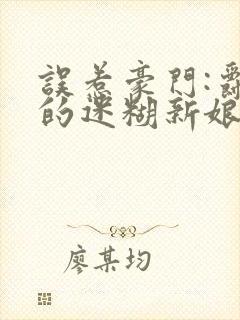 誤惹豪門:
的迷糊新娘
廖某均